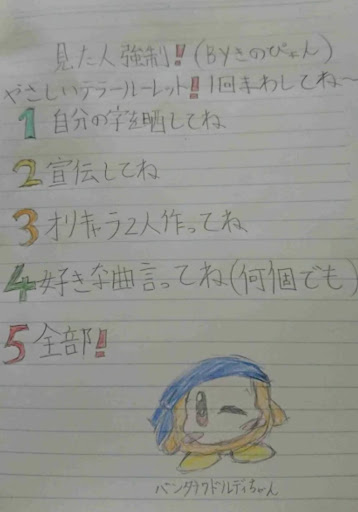 見た人強制!(BYさのぴょん)
やさしいテラールーレット!1回まわしてね〜
1 自分の字を晒してね
2 宣伝してね
3 オリキャラ2人作ってね
4 好きな曲言ってね(何個でも)
5 全部!
バンダナワドルディちゃん